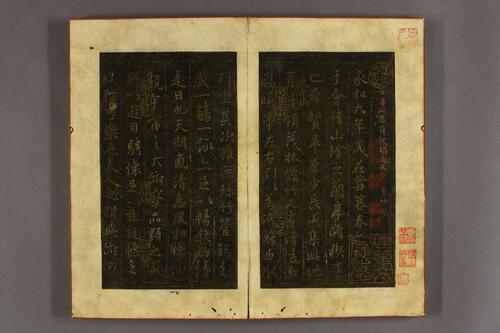 永和九年歲在癸丑暮春
于會稽山陰之蘭亭脩禊事
也羣賢畢至少長咸集此地
有峻領茂林脩竹又有清流激
湍暎帶左右引以為流觴曲水
列坐其次雖無絲竹管弦之
盛一觴一詠亦足以暢敘幽情
是日也天朗氣清惠風和暢仰
觀宇宙之大俯察品類之盛
所以遊目騁懷足以極視聽之
娛信可樂也夫人之相與俯仰